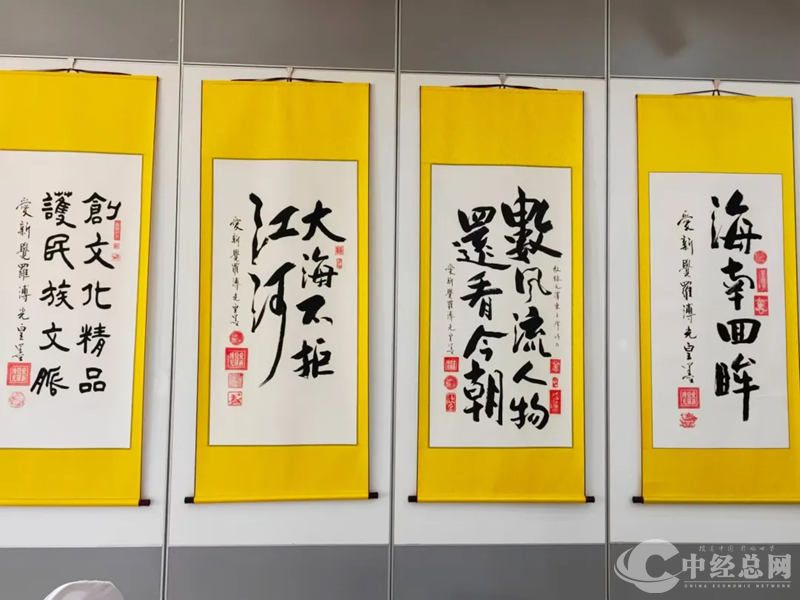 創文化精品
護民族文脈
愛新覺羅溥光皇善
大海不拒
江河
愛新覺羅溥光皇善
數风流人物
還看今朝
愛新覺羅溥光皇善
海南回眸
愛新覺羅溥光皇善
中经总网
CHINA ECONOMIC NETWORK